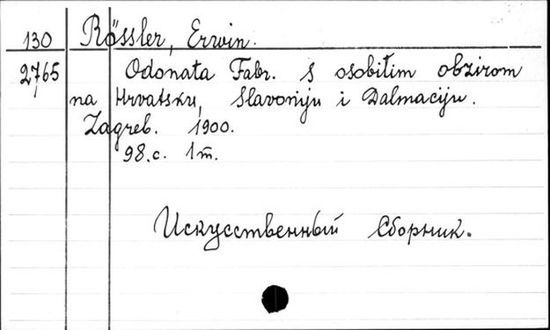 130 Rössler, Erwin.
2765 Odonata Fabr. S osobitim obzirom
na Hrvatsku, Slavoniju i Dalmaciju.
Zagreb. 1900.
98.c. 1 m.
Искусственный Сборник.